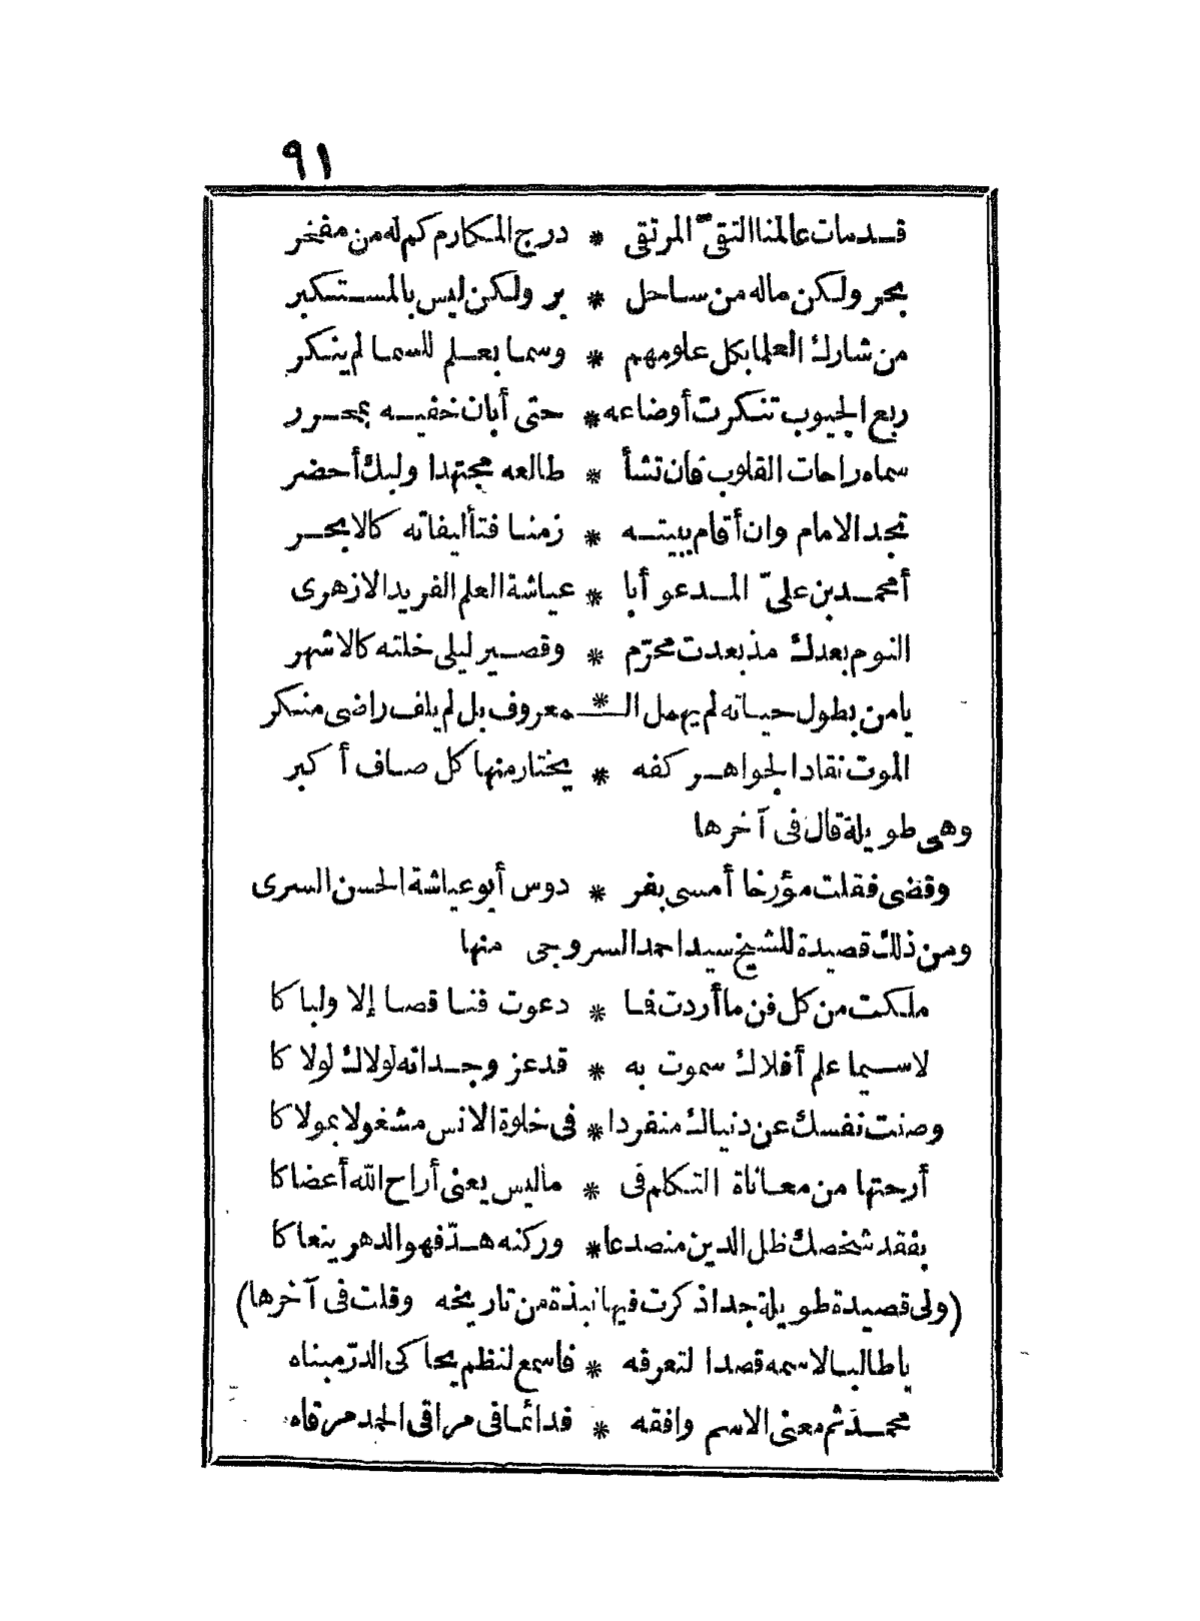 ٩١
قد مات عالمنا التقيّ المرتقى * درج المكارم كم له من مفخر
بحر ولكن ماله من ساحل * بر ولكن ليس بالمستكبر
من شارك العلما بكل علومهم * وسما بعلم للسما لم ينكر
ربع الجيوب تنكرت أوضاعه * حتى أبان خفيه بمحرر
سماه راحات القلوب فان تشأ * طالعه مجتهدا ولبك أحضر
تجد الامام وان أقام ببيته * زمنا فتأليفاته كالابحر
أمحمد بن عليّ المدعو أبا * عياشة العلم الفريد الازهرى
النوم بعدك مذ بعدت محرّم * وقصير ليلى خلته كالاشهر
يا من بطول حياته لم يهمل الـ * ـمعروف بل لم يلف راضى منكر
الموت نقاد الجواهر كفه * يختار منها كل صاف أكبر
وهى طويلة قال فى آخرها
وقضى فقلت مؤرخا أمسى بفر * دوس أبو عياشة الحسن السرى
ومن ذلك قصيدة للشيخ سيد احمد السروجى منها
ملكت من كل فن ما أردت فما * دعوت فنا قصا إلا ولباكا
لاسيما علم أفلاك سموت به * قد عز وجدانه لولاك لولاكا
وصنت نفسك عن دنياك منفردا * فى خلوة الانس مشغولا بمولاكا
أرحتها من معاناة التكلم فى * ما ليس يعنى أراح الله أعضاكا
بفقد شخصك ظل الدين منصدعا * وركنه هدّ فهو الدهر ينعاكا
(ولى قصيدة طويلة جدا ذكرت فيها نبذة من تاريخه وقلت فى آخرها)
يا طالبا لاسمه قصدا لتعرفه * فاسمع لنظم يحاكى الدرّ مبناه
محمد ثم معنى الاسم وافقه * فدائما فى مراقى الحمد مرقاه